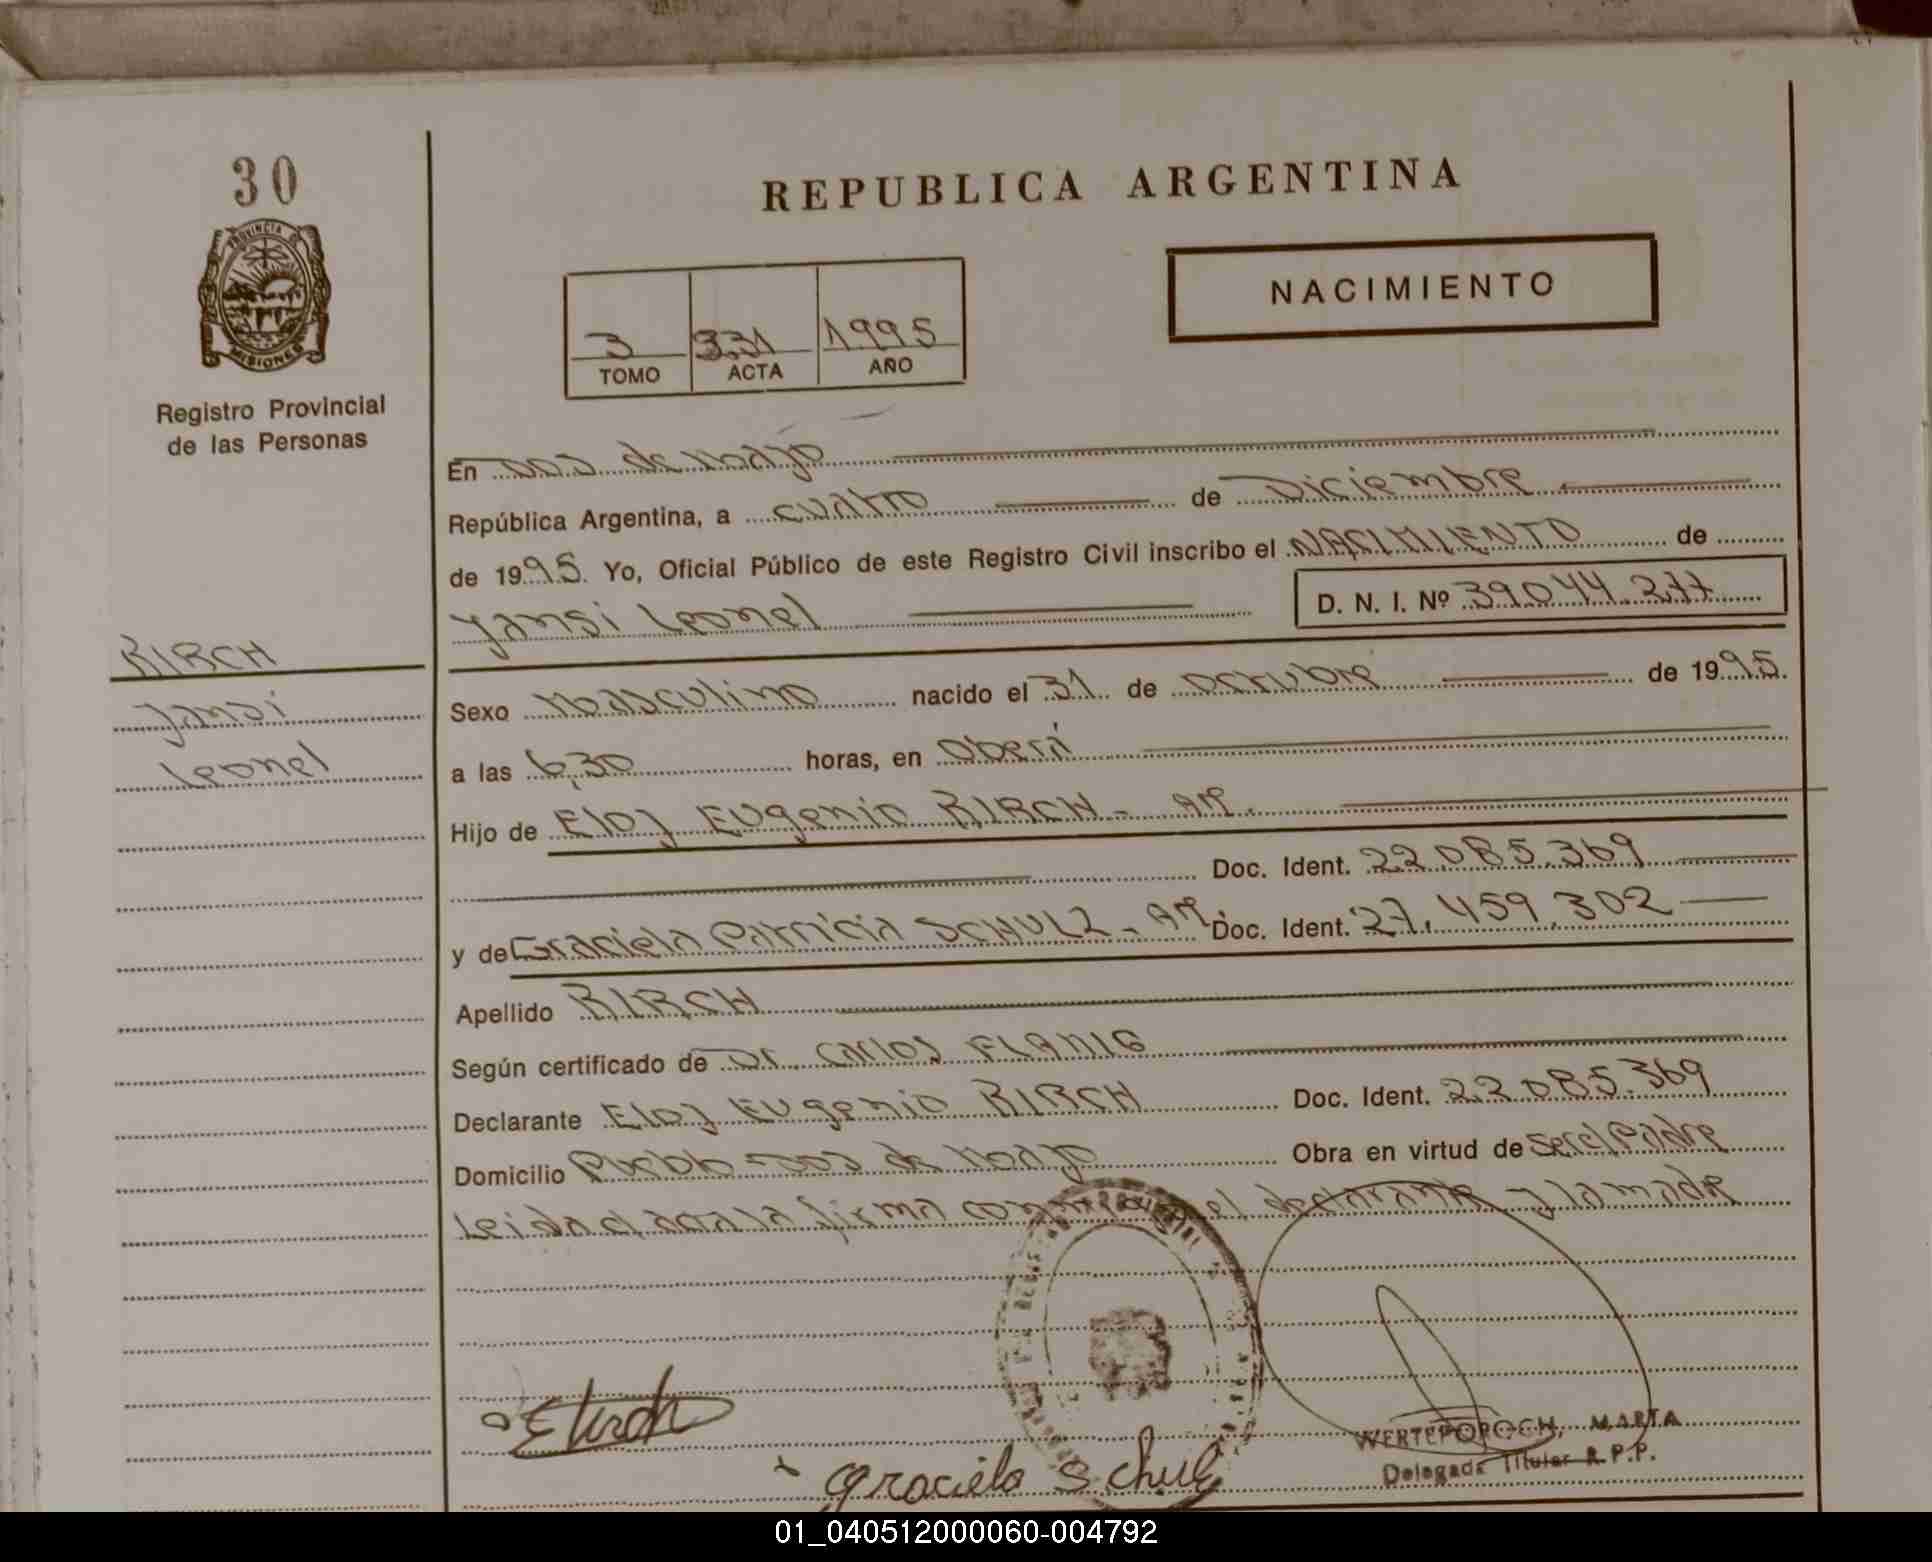 30
PROVINCIA DE
MISIONES
Registro Provincial
de las Personas
REPUBLICA ARGENTINA
NACIMIENTO
3 331 1995
TOMO ACTA AÑO
En Dos de Mayo
República Argentina, a cuatro de Diciembre
de 1995. Yo, Oficial Público de este Registro Civil inscribo el NACIMIENTO de
Yansi Leonel D. N. I. Nº 39044.277
KIRCH
Yansi
Leonel
Sexo Masculino nacido el 31 de octubre de 1995.
a las 6,30 horas, en Oberá
Hijo de Eloy Eugenio KIRCH - AR.
Doc. Ident. 22.085.369
y de Graciela Patricia SCHULZ - AR. Doc. Ident. 27.459.302
Apellido KIRCH
Según certificado de Dr. Carlos FLANIG
Declarante Eloy Eugenio KIRCH Doc. Ident. 22.085.369
Domicilio Pueblo Dos de Mayo Obra en virtud de ser el Padre
Leida el acta la firma conmigo el declarante y la madre
E Kirch
Graciela Schulz
Delegada Titular R.P.P.
01_040512000060-004792